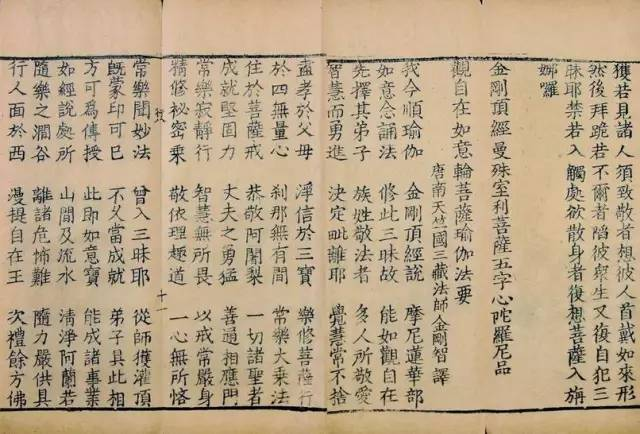 獲若見諸人須致敬者想彼人首戴如來形
然後拜跪若不爾者陷彼衆生又復自犯三
昧耶禁若入觸處欲散身者復想菩薩入旃
娜囉
金剛頂經曼殊室利菩薩五字心陀羅尼品
觀自在如意輪菩薩瑜伽法要
唐南天竺國三藏法師金剛智 譯
我今順瑜伽 金剛頂經說 摩尼蓮華部
如意念誦法 修此三昧故 能如觀自在
先擇其弟子 族姓敬法者 多人所敬愛
智慧而勇進 決定毗離耶 覺慧常不捨
盡孝於父母 淨信於三寶 樂修菩薩行
於四無量心 刹那無有間 常樂大乘法
住於菩薩戒 恭敬阿闍梨 一切諸聖者
成就堅固力 丈夫之勇猛 善過相應門
常樂寂靜行 智慧無所畏 以戒常嚴身
精修祕密乘 敬依理趣道 一心無所悋
十一
常樂聞妙法 曾入三昧耶 從師獲灌頂
旣蒙印可已 不久當成就 弟子具此相
方可爲傳授 此即如意寶 能成諸事業
如經說處所 山間及流水 清淨阿蘭若
隨樂之澗谷 離諸危怖難 隨力嚴供具
行人面於西 漫提自在王 次禮餘方佛